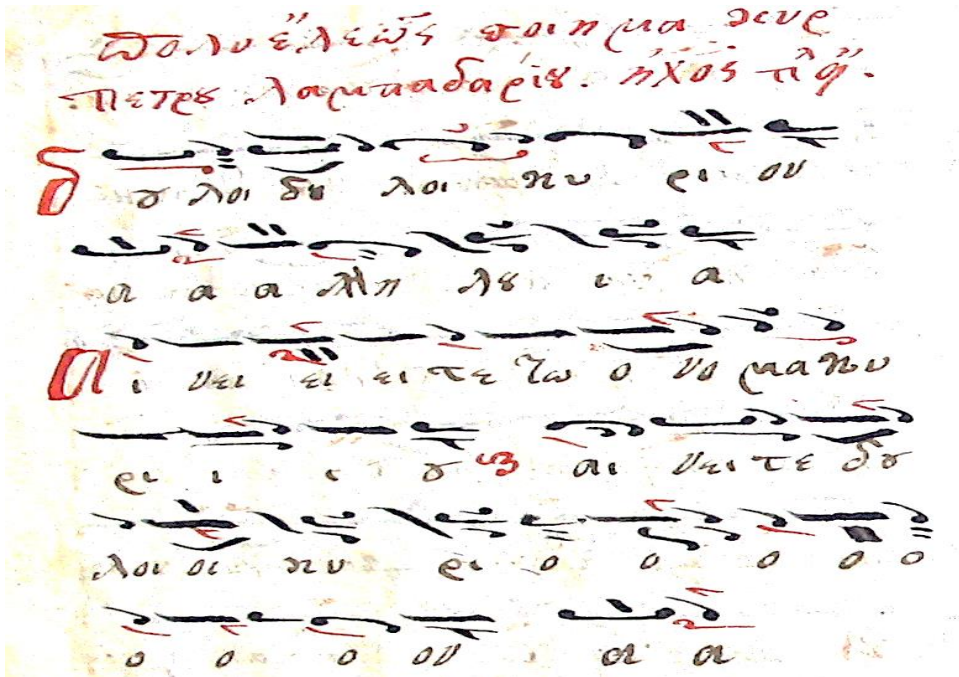 Πολυέλεως ποίημα κυρ
Πέτρȣ λαμπαδαρίȣ. ἦχος πλ α.
Δ ȣ λοι δȣ λοι κυ ρι ου
α α α λλη λȣ ι α
Α ι νει ει ει τε το ο νο μα κυ
ρι ι ι ȣ αι νει τε δȣ
λοι οι κυ ρι ο ο ο ο ο
ο ο ο ου α α